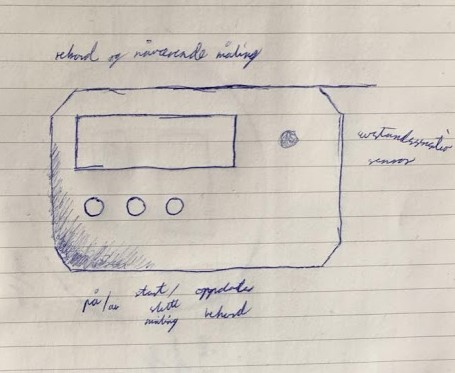 rekord og nåværende måling
sensor
på/av
start/
slette
måling
oppdater
rekord